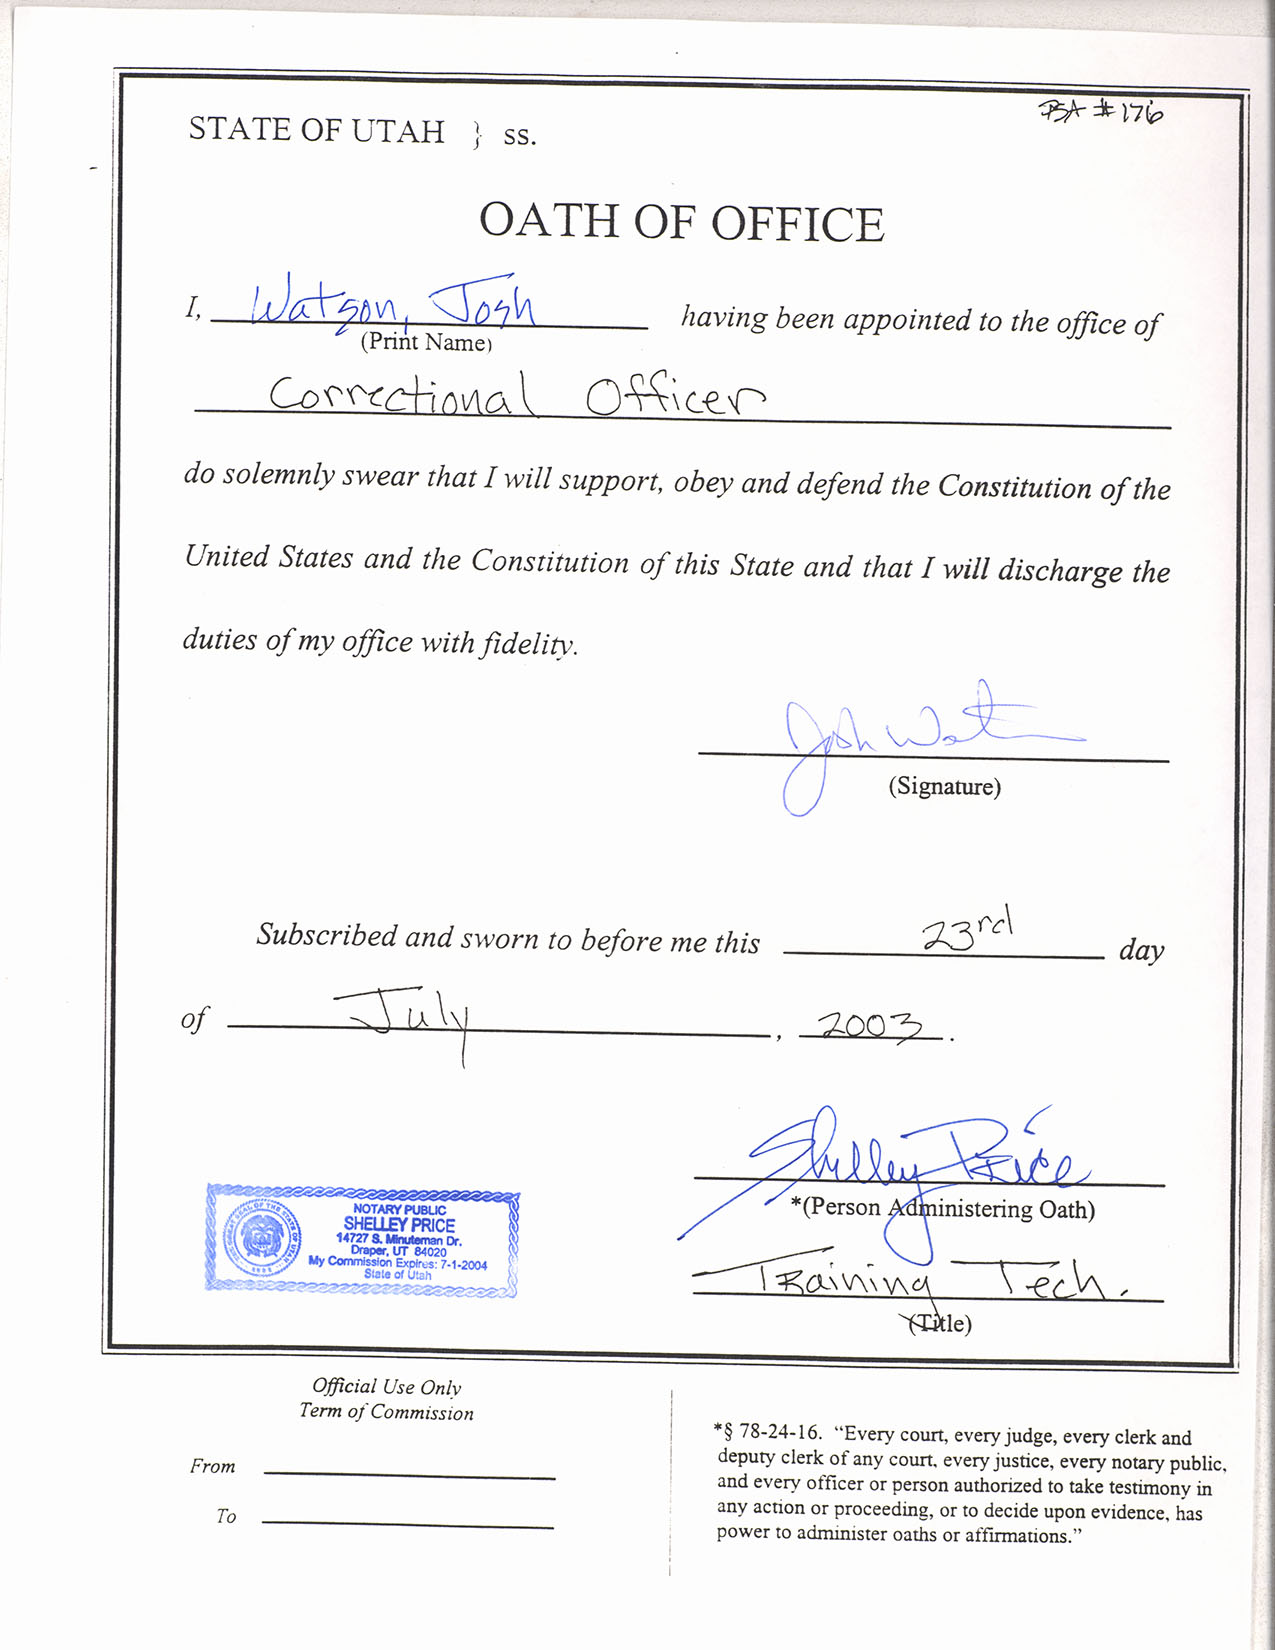 BSA # 176
STATE OF UTAH } ss.
OATH OF OFFICE
I, Watson, Josh having been appointed to the office of
(Print Name)
Correctional Officer
do solemnly swear that I will support, obey and defend the Constitution of the
United States and the Constitution of this State and that I will discharge the
duties of my office with fidelity.
Josh Wat
(Signature)
Subscribed and sworn to before me this 23rd day
of July, 2003.
Shelley Price
*(Person Administering Oath)
Training Tech.
(Title)
NOTARY PUBLIC
SHELLEY PRICE
14727 S. Minuteman Dr.
Draper, UT 84020
My Commission Expires: 7-1-2004
State of Utah
THE GREAT SEAL OF THE STATE OF UTAH
Official Use Only
Term of Commission
From
To
*§ 78-24-16. "Every court, every judge, every clerk and
deputy clerk of any court, every justice, every notary public,
and every officer or person authorized to take testimony in
any action or proceeding, or to decide upon evidence, has
power to administer oaths or affirmations."